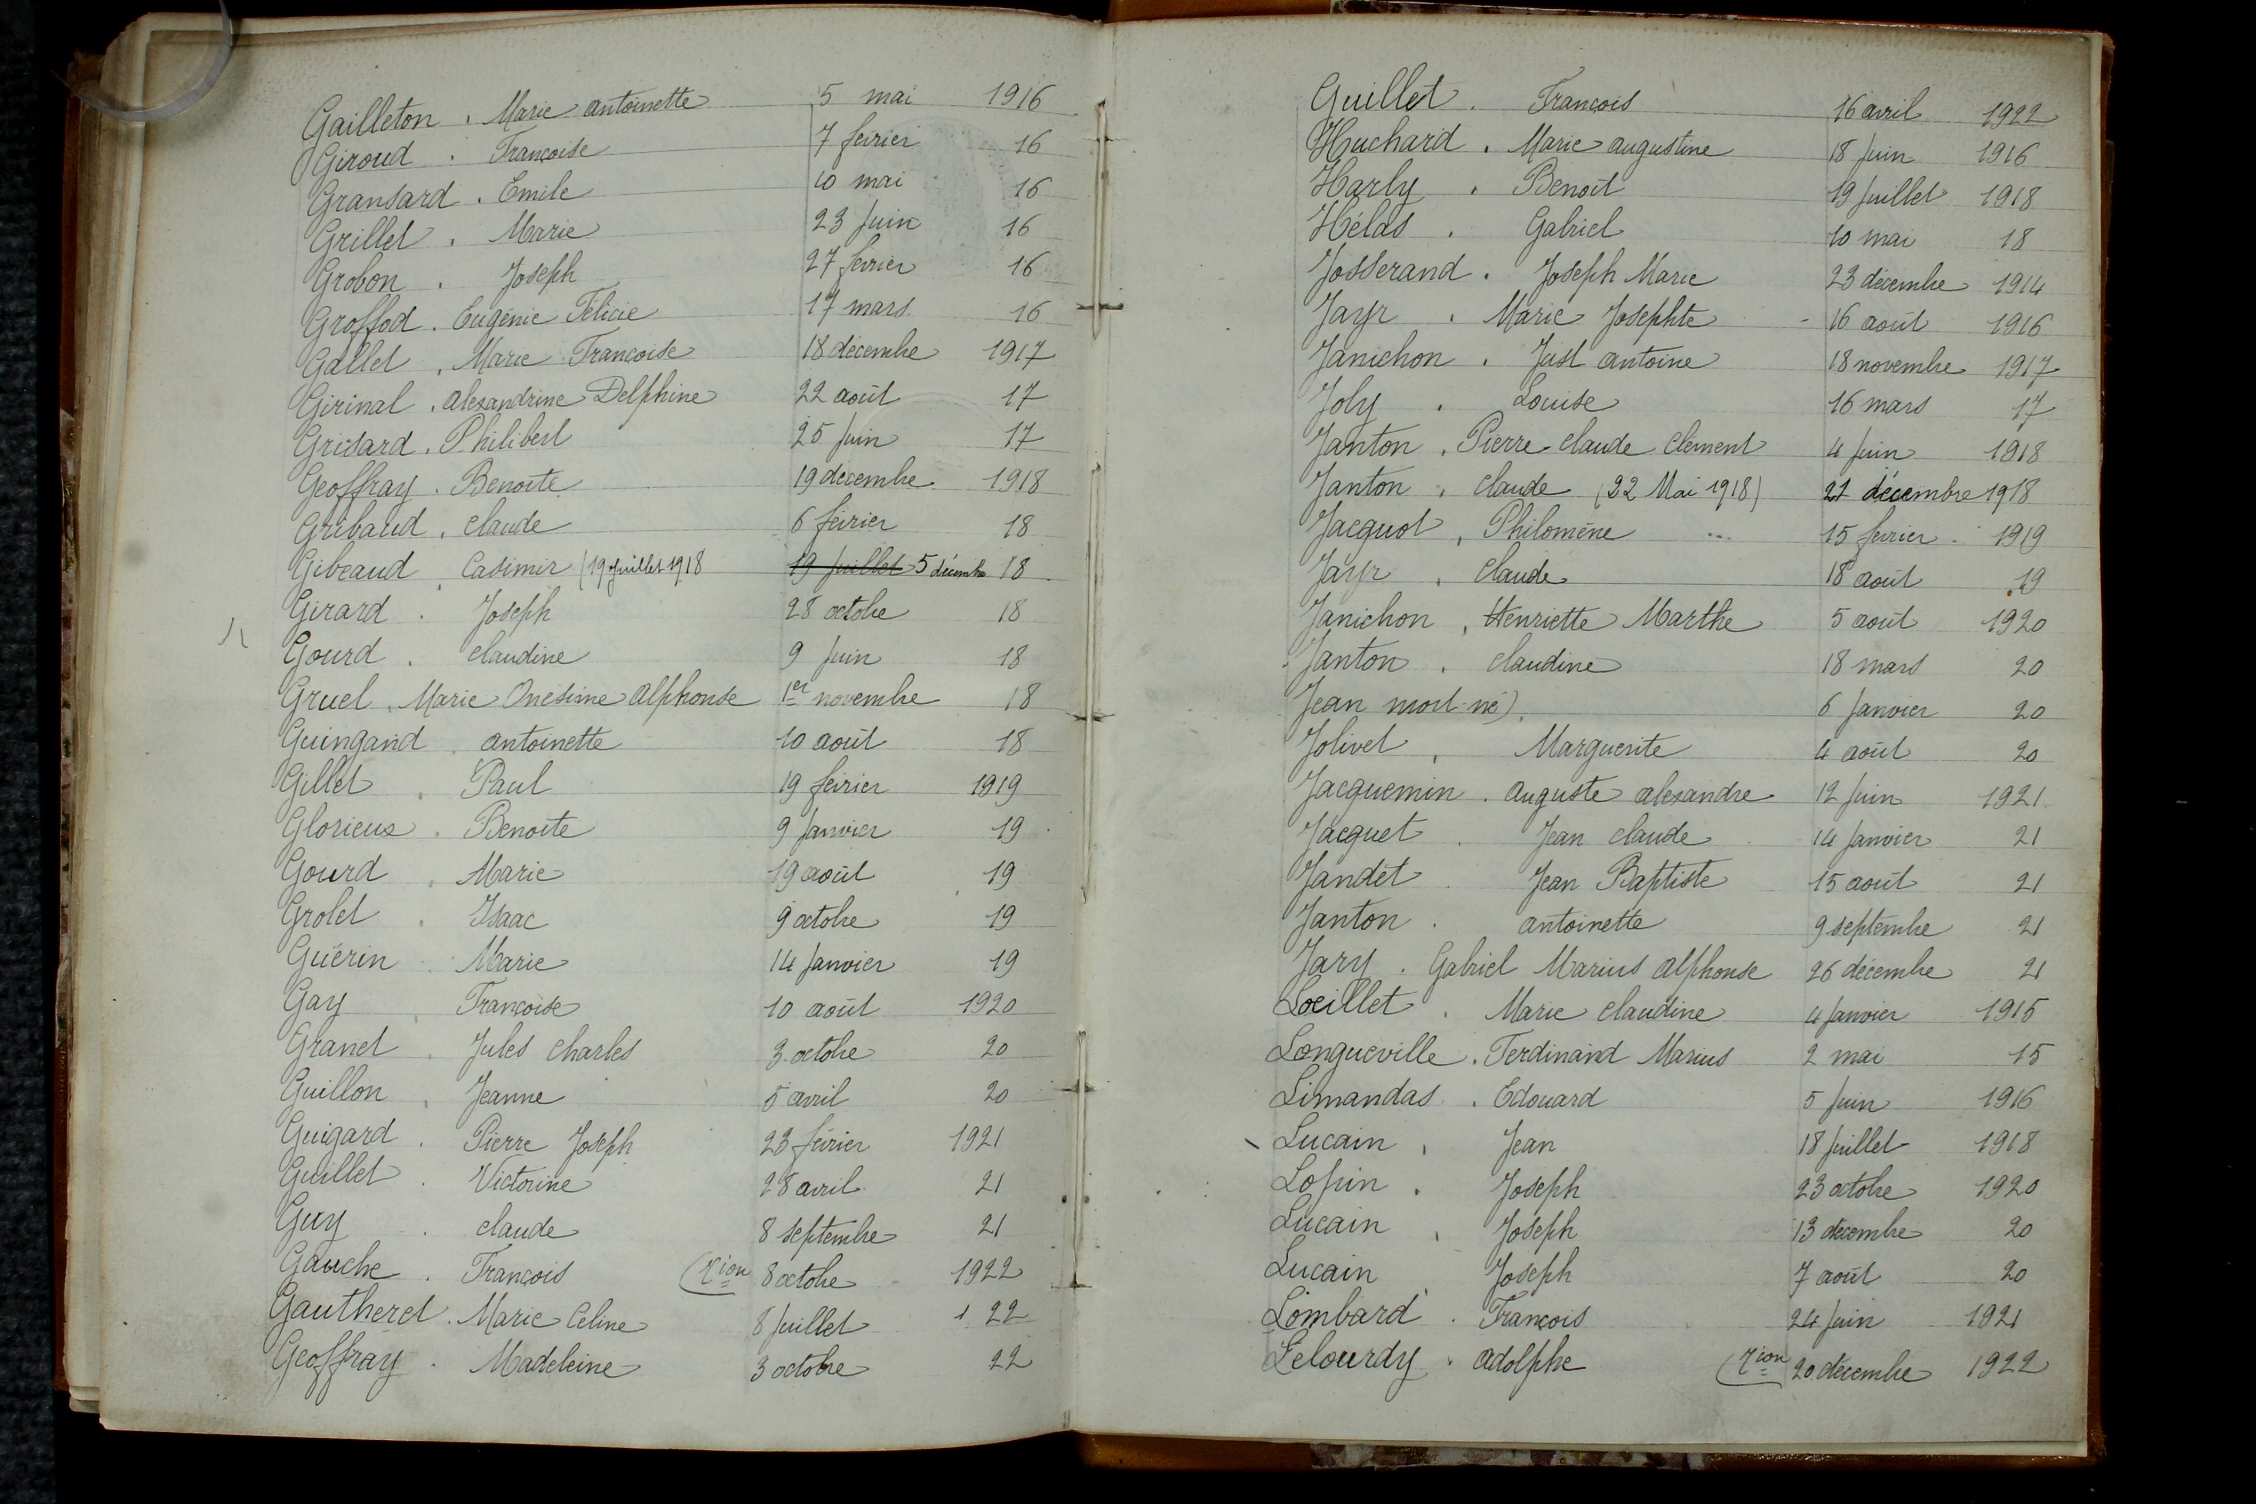 Gailleton . Marie antoinette 5 mai 1916
Giroud . Françoise 7 février 16
Gransard . Emile 10 mai 16
Grillet . Marie 23 Juin 16
Grobon . Joseph 27 février 16
Groffod . Eugénie Félicie 17 mars 16
Gallet . Marie Françoise 18 décembre 1917
Girinal . alexandrine Delphine 22 août 17
Grisard . Philibert 25 Juin 17
Geoffray . Benoite 19 décembre 1918
Gribaud . claude 6 février 18
Gibeaud Casimir (19 Juillet 1918 19 Juillet 5 décemb 18
Girard . Joseph 28 octobre 18
Gourd . claudine 9 Juin 18
Gruel . Marie Onésime Alphonse 1er novembre 18
Guingand . antoinette 10 août 18
Gillet . Paul 19 février 1919
Glorieux . Benoite 9 Janvier 19
Gourd . Marie 19 août 19
Grolet . Isaac 9 octobre 19
Guérin . Marie 14 Janvier 19
Gay . Françoise 10 août 1920
Granet . Jules charles 3 octobre 20
Guillon . Jeanne 5 avril 20
Guigard . Pierre Joseph 23 février 1921
Guillet . Victorine 28 avril 21
Guy . claude 8 septembre 21
Gauche . François (Rion 8 octobre 1922
Gautheret . Marie Celine 8 Juillet 1 22
Geoffray . Madeleine 3 octobre 22
Guillet . François 16 avril 1922
Huchard . Marie augustine 18 Juin 1916
Harly . Benoît 19 Juillet 1918
Hélas . Gabriel 10 mai 18
Josserand . Joseph Marie 23 décembre 1914
Jayr . Marie Josephte 16 août 1916
Janichon . Just antoine 18 novembre 1917
Joly . Louise 16 mars 17
Janton . Pierre claude clément 4 Juin 1918
Janton . claude (22 Mai 1918) 21 décembre 1918
Jacquot . Philomène 15 février 1919
Jayr . claude 18 août 19
Janichon . Henriette Marthe 5 août 1920
Janton . claudine 18 mars 20
Jean mort-né). 6 Janvier 20
Jolivet . Marguerite 4 août 20
Jacquemin . auguste alexandre 12 Juin 1921
Jacquet . Jean claude 14 Janvier 21
Jandet . Jean Baptiste 15 août 21
Janton . antoinette 9 septembre 21
Jary . Gabriel Marius alphonse 26 décembre 21
Loeillet . Marie claudine 4 Janvier 1915
Longueville . Ferdinand Marius 2 mai 15
Limandas . Edouard 5 Juin 1916
Lucain . Jean 18 Juillet 1918
Lopin . Joseph 23 octobre 1920
Lucain . Joseph 13 décembre 20
Lucain Joseph 7 août 20
Lombard . François 24 Juin 1921
Lelourdy . adolphe (Rion 20 décembre 1922